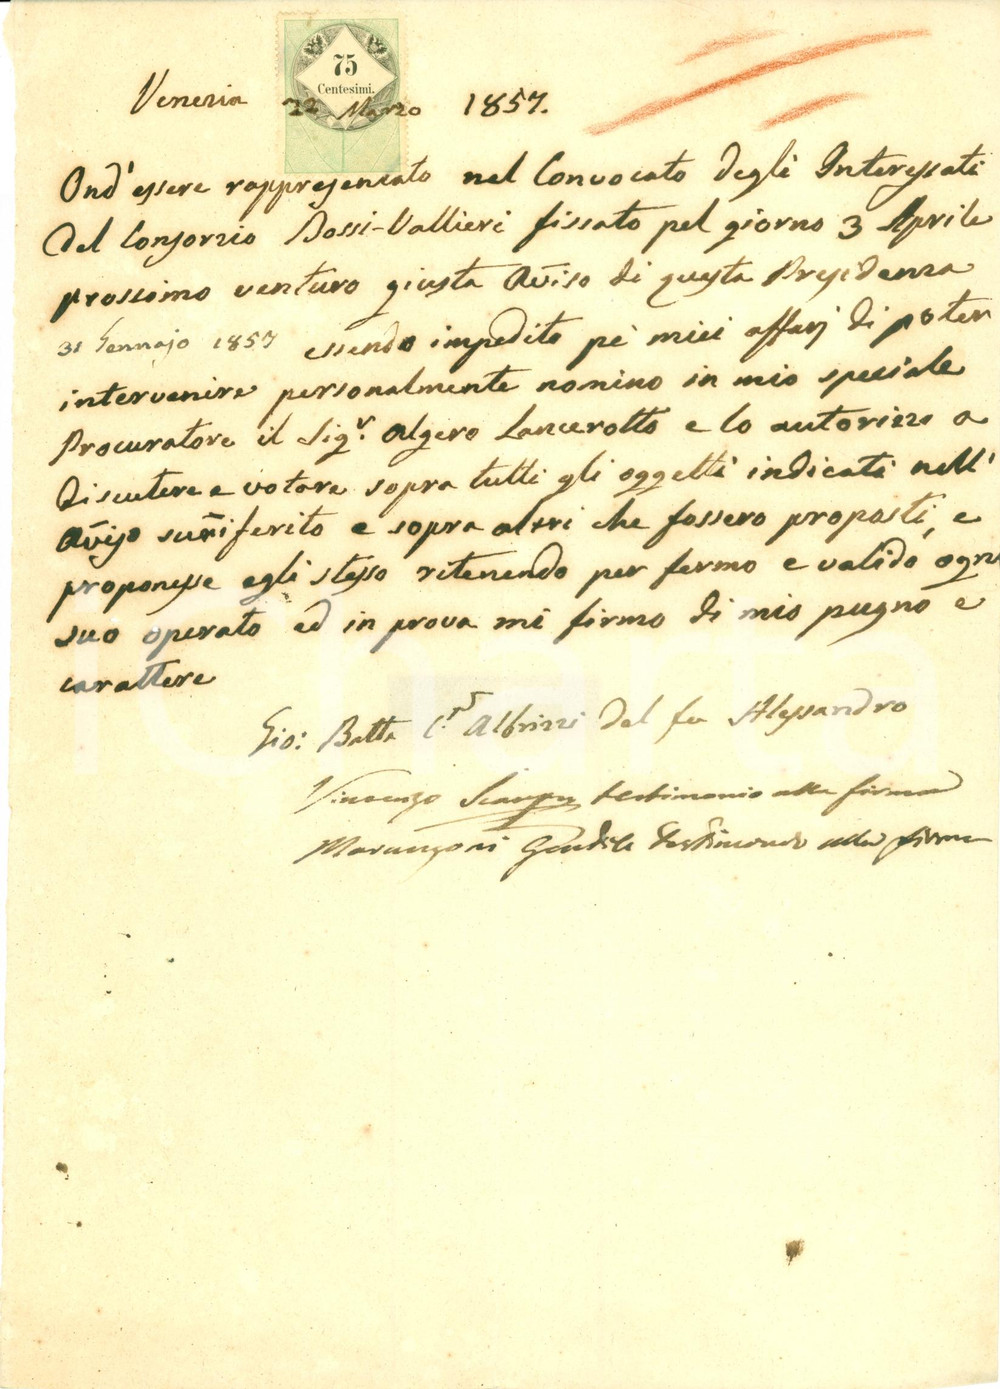 75
Centesimi.
Venezia 22 Marzo 1857.
Ond'essere rappresentato nel Convocato degli Interessati
del Consorzio Bassi-Vallieri fissato pel giorno 3 Aprile
prossimo venturo giusta Avviso di questa Presidenza
31 Gennajo 1857 essendo impedito pè miei affarj di poter
intervenire personalmente nomino in mio speciale
Procuratore il Sigr. Algero Lancerotto e lo autorizzo a
discutere e votare sopra tutti gli oggetti indicati nell'
Avviso surriferito e sopra altri che fossero proposti, e
proponesse egli stesso ritenendo per fermo e valido ogni
suo operato ed in prova mi firmo di mio pugno e
carattere
Gio: Batta C. Albrizzi del fu Alessandro
Vincenzo testimonio alla firma
Marangoni Gentile testimonio alla firma